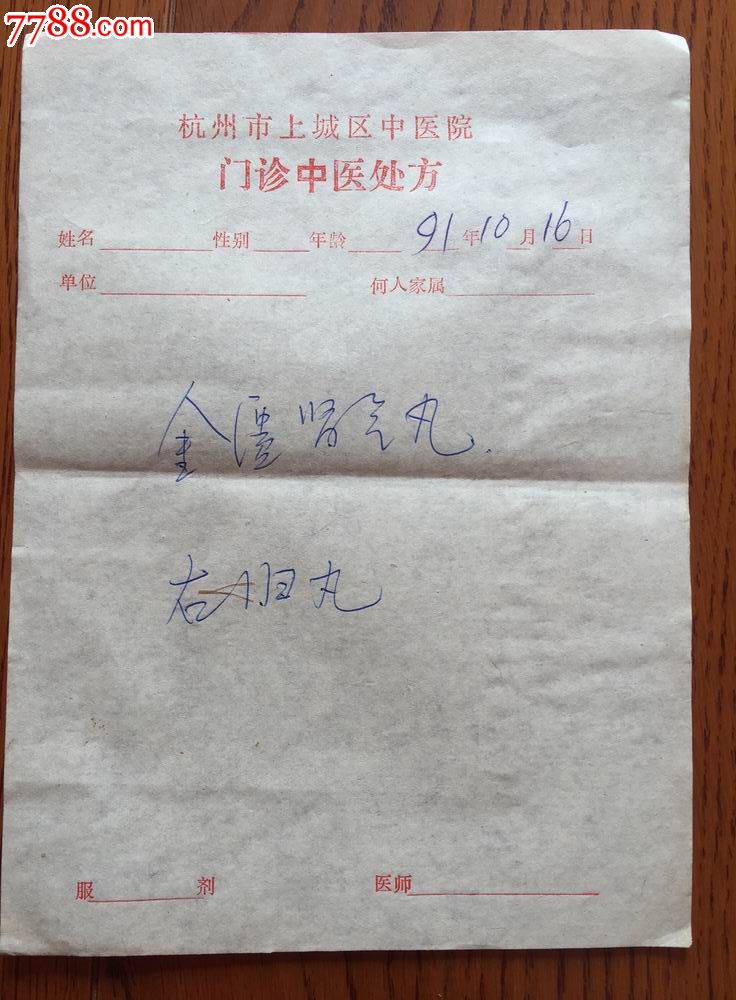 7788.com
杭州市上城区中医院
门诊中医处方
姓名 性别 年龄 91年10月16日
单位 何人家属
金匮肾气丸.
右归丸
服 剂
医师